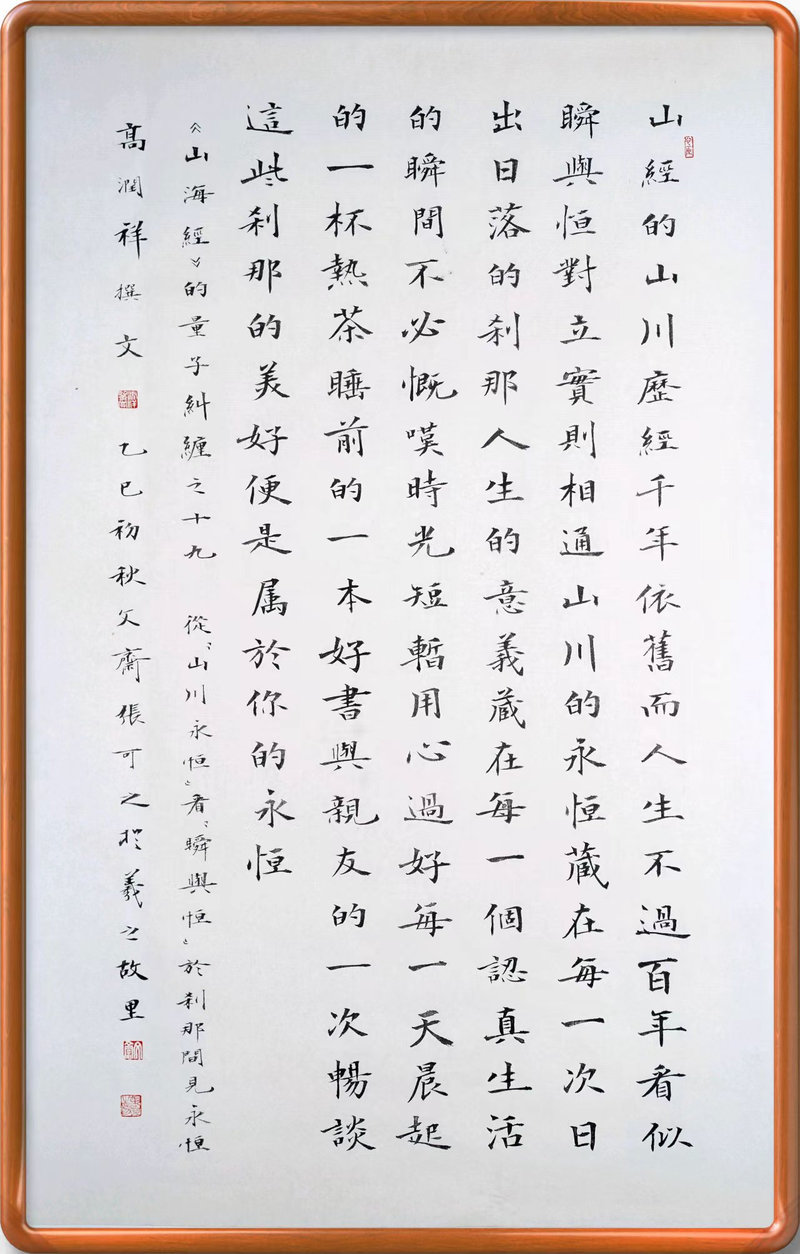 山經的山川歷經千年依舊而人生不過百年看似
瞬與恒對立實則相通山川的永恒藏在每一次日
出日落的刹那人生的意義藏在每一個認真生活
的瞬間不必慨嘆時光短暫用心過好每一天晨起
的一杯熱茶睡前的一本好書與親友的一次暢談
這些刹那的美好便是属於你的永恒
《山海經》的量子糾纏之十九 從“山川永恒”看“瞬與恒”於刹那間見永恒
高潤祥撰文 乙巳初秋文齋張可之於羲之故里